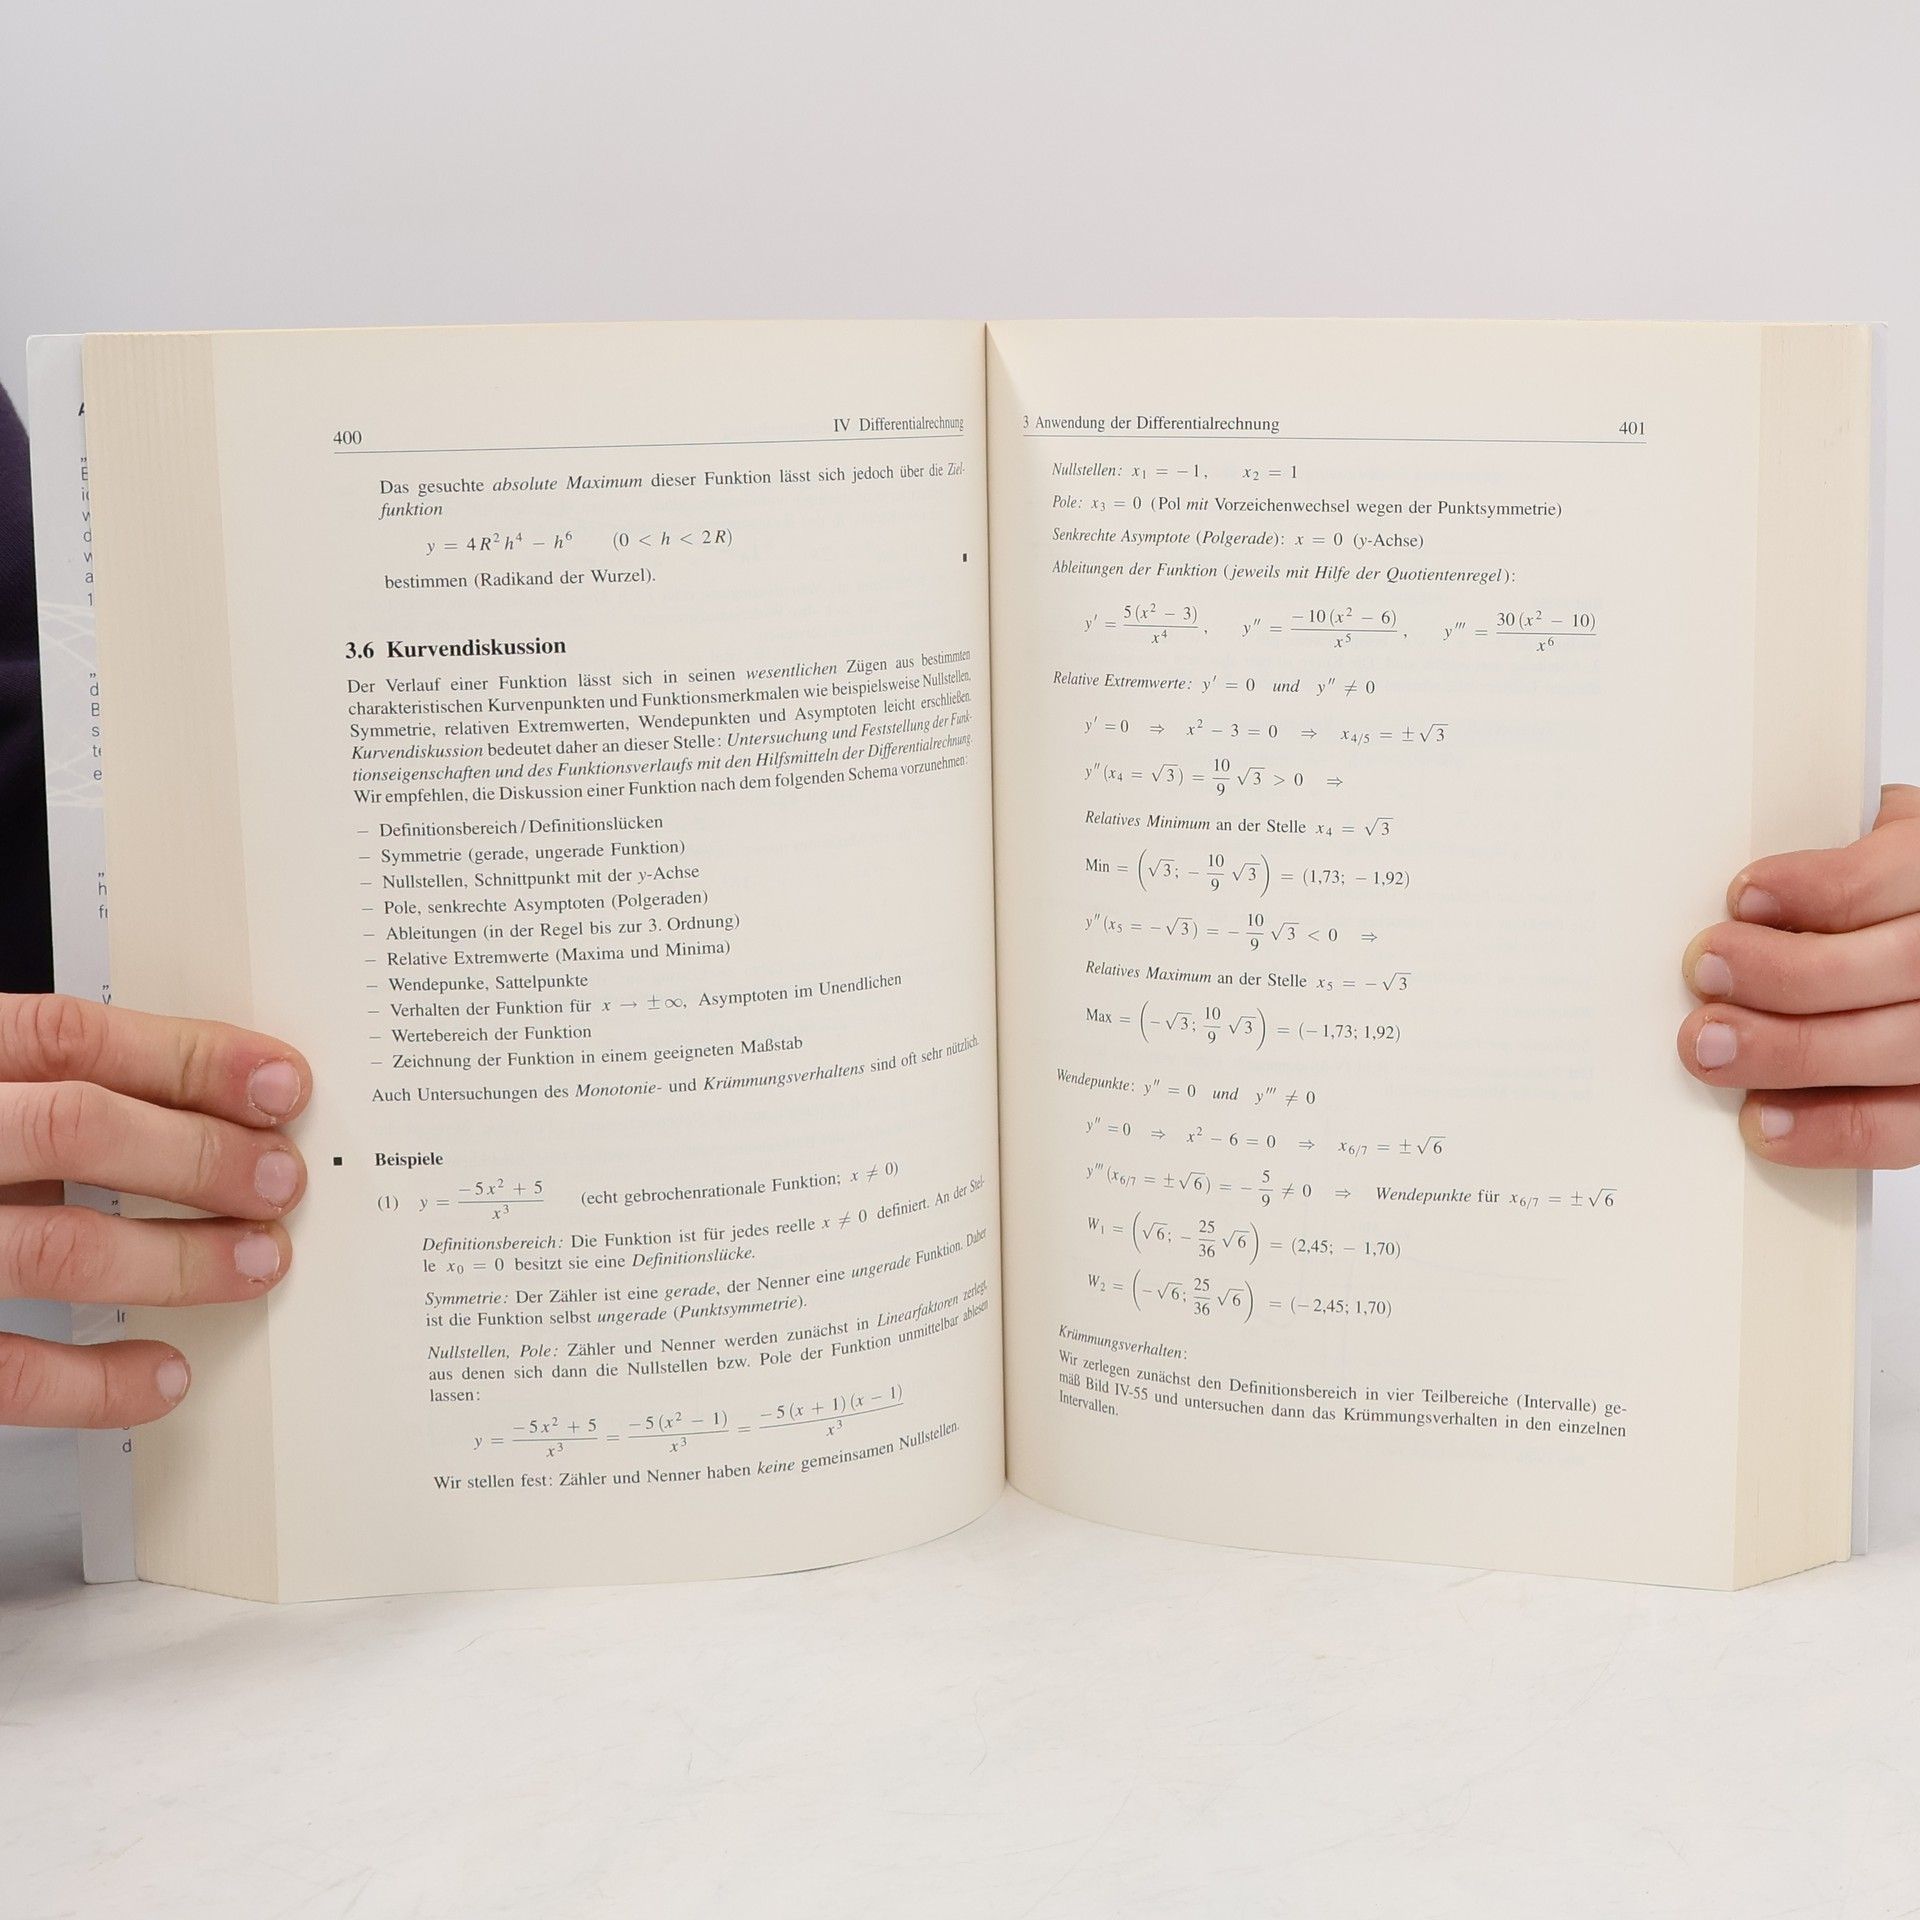 400 IV Differentialrechnung
Das gesuchte absolute Maximum dieser Funktion lässt sich jedoch über die Ziel-
funktion
y = 4R² h⁴ − h⁶ (0 < h < 2R)
bestimmen (Radikand der Wurzel).
3.6 Kurvendiskussion
Der Verlauf einer Funktion lässt sich in seinen wesentlichen Zügen aus bestimmten
charakteristischen Kurvenpunkten und Funktionsmerkmalen wie beispielsweise Nullstellen,
Symmetrie, relativen Extremwerten, Wendepunkten und Asymptoten leicht erschließen.
Kurvendiskussion bedeutet daher an dieser Stelle: Untersuchung und Feststellung der Funk-
tionseigenschaften und des Funktionsverlaufs mit den Hilfsmitteln der Differentialrechnung.
Wir empfehlen, die Diskussion einer Funktion nach dem folgenden Schema vorzunehmen:
– Definitionsbereich / Definitionslücken
– Symmetrie (gerade, ungerade Funktion)
– Nullstellen, Schnittpunkt mit der y-Achse
– Pole, senkrechte Asymptoten (Polgeraden)
– Ableitungen (in der Regel bis zur 3. Ordnung)
– Relative Extremwerte (Maxima und Minima)
– Wendepunke, Sattelpunkte
– Verhalten der Funktion für x → ±∞, Asymptoten im Unendlichen
– Wertebereich der Funktion
– Zeichnung der Funktion in einem geeigneten Maßstab
Auch Untersuchungen des Monotonie- und Krümmungsverhaltens sind oft sehr nützlich.
■ Beispiele
(1) y = (−5x² + 5)/x³ (echt gebrochenrationale Funktion; x ≠ 0)
Definitionsbereich: Die Funktion ist für jedes reelle x ≠ 0 definiert. An der Stel-
le x₀ = 0 besitzt sie eine Definitionslücke.
Symmetrie: Der Zähler ist eine gerade, der Nenner eine ungerade Funktion. Daher
ist die Funktion selbst ungerade (Punktsymmetrie).
Nullstellen, Pole: Zähler und Nenner werden zunächst in Linearfaktoren zerlegt,
aus denen sich dann die Nullstellen bzw. Pole der Funktion unmittelbar ablesen
lassen:
y = (−5x² + 5)/x³ = −5(x² − 1)/x³ = −5(x + 1)(x − 1)/x³
Wir stellen fest: Zähler und Nenner haben keine gemeinsamen Nullstellen.
3 Anwendung der Differentialrechnung 401
Nullstellen: x₁ = −1, x₂ = 1
Pole: x₃ = 0 (Pol mit Vorzeichenwechsel wegen der Punktsymmetrie)
Senkrechte Asymptote (Polgerade): x = 0 (y-Achse)
Ableitungen der Funktion (jeweils mit Hilfe der Quotientenregel):
y′ = 5(x² − 3)/x⁴, y″ = −10(x² − 6)/x⁵, y‴ = 30(x² − 10)/x⁶
Relative Extremwerte: y′ = 0 und y″ ≠ 0
y′ = 0 ⇒ x² − 3 = 0 ⇒ x₄/₅ = ±√3
y″(x₄ = √3) = 10/9 √3 > 0 ⇒
Relatives Minimum an der Stelle x₄ = √3
Min = (√3; −10/9 √3) = (1,73; −1,92)
y″(x₅ = −√3) = −10/9 √3 < 0 ⇒
Relatives Maximum an der Stelle x₅ = −√3
Max = (−√3; 10/9 √3) = (−1,73; 1,92)
Wendepunkte: y″ = 0 und y‴ ≠ 0
y″ = 0 ⇒ x² − 6 = 0 ⇒ x₆/₇ = ±√6
y‴(x₆/₇ = ±√6) = −5/9 ≠ 0 ⇒ Wendepunkte für x₆/₇ = ±√6
W₁ = (√6; −25/36 √6) = (2,45; −1,70)
W₂ = (−√6; 25/36 √6) = (−2,45; 1,70)
Krümmungsverhalten:
Wir zerlegen zunächst den Definitionsbereich in vier Teilbereiche (Intervalle) ge-
mäß Bild IV-55 und untersuchen dann das Krümmungsverhalten in den einzelnen
Intervallen.